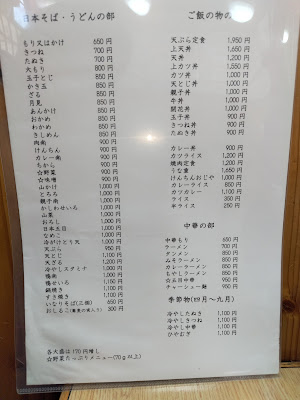 日本そば・うどんの部
もり又はかけ 650円
きつね 700円
たぬき 700円
大もり 800円
玉子とじ 850円
かき玉 850円
ざる 850円
月見 850円
あんかけ 850円
おかめ 850円
わかめ 850円
きしめん 850円
肉南 900円
けんちん 900円
カレー南 900円
ちから 900円
☆野菜 900円
☆味噌 900円
山かけ 1,000円
とろろ 1,000円
親子南 1,000円
かしわせいろ 1,000円
山菜 1,000円
おろし 1,000円
日本五目 1,000円
なめこ 1,000円
冷がけとり天 1,000円
天ぷら 950円
天とじ 1,100円
天ざる 1,200円
冷やしスタミナ 1,000円
鴨南 1,200円
鴨せいろ 1,100円
鍋焼き 1,100円
すき焼き 1,100円
いなりそば(三個) 650円
おしるこ 300円
各大盛は170円増し
☆野菜たっぷりメニュー(70g以上)
ご飯の物の
天ぷら定食 1,950円
上天丼 1,650円
天丼 1,200円
上カツ丼 1,550円
カツ丼 1,000円
天とじ丼 1,000円
親子丼 1,000円
牛丼 1,000円
開花丼 1,000円
玉子丼 900円
きつね丼 900円
たぬき丼 900円
カレー丼 900円
カツライス 1,200円
焼肉定食 1,200円
うな重 1,650円
けんちんおじや 1,000円
カレーライス 850円
カツカレー 1,100円
ライス 350円
半ライス 250円
中華の部
中華もり 650円
ラーメン 700円
タンメン 850円
みそラーメン 850円
カレーラーメン 850円
もやしラーメン 850円
☆五目中華 850円
チャーシュー麺 950円
季節物(09月~九月)
冷やしたぬき 1,100円
冷やしきつね 1,100円
冷やし中華 1,100円
ひやむぎ 1,100円